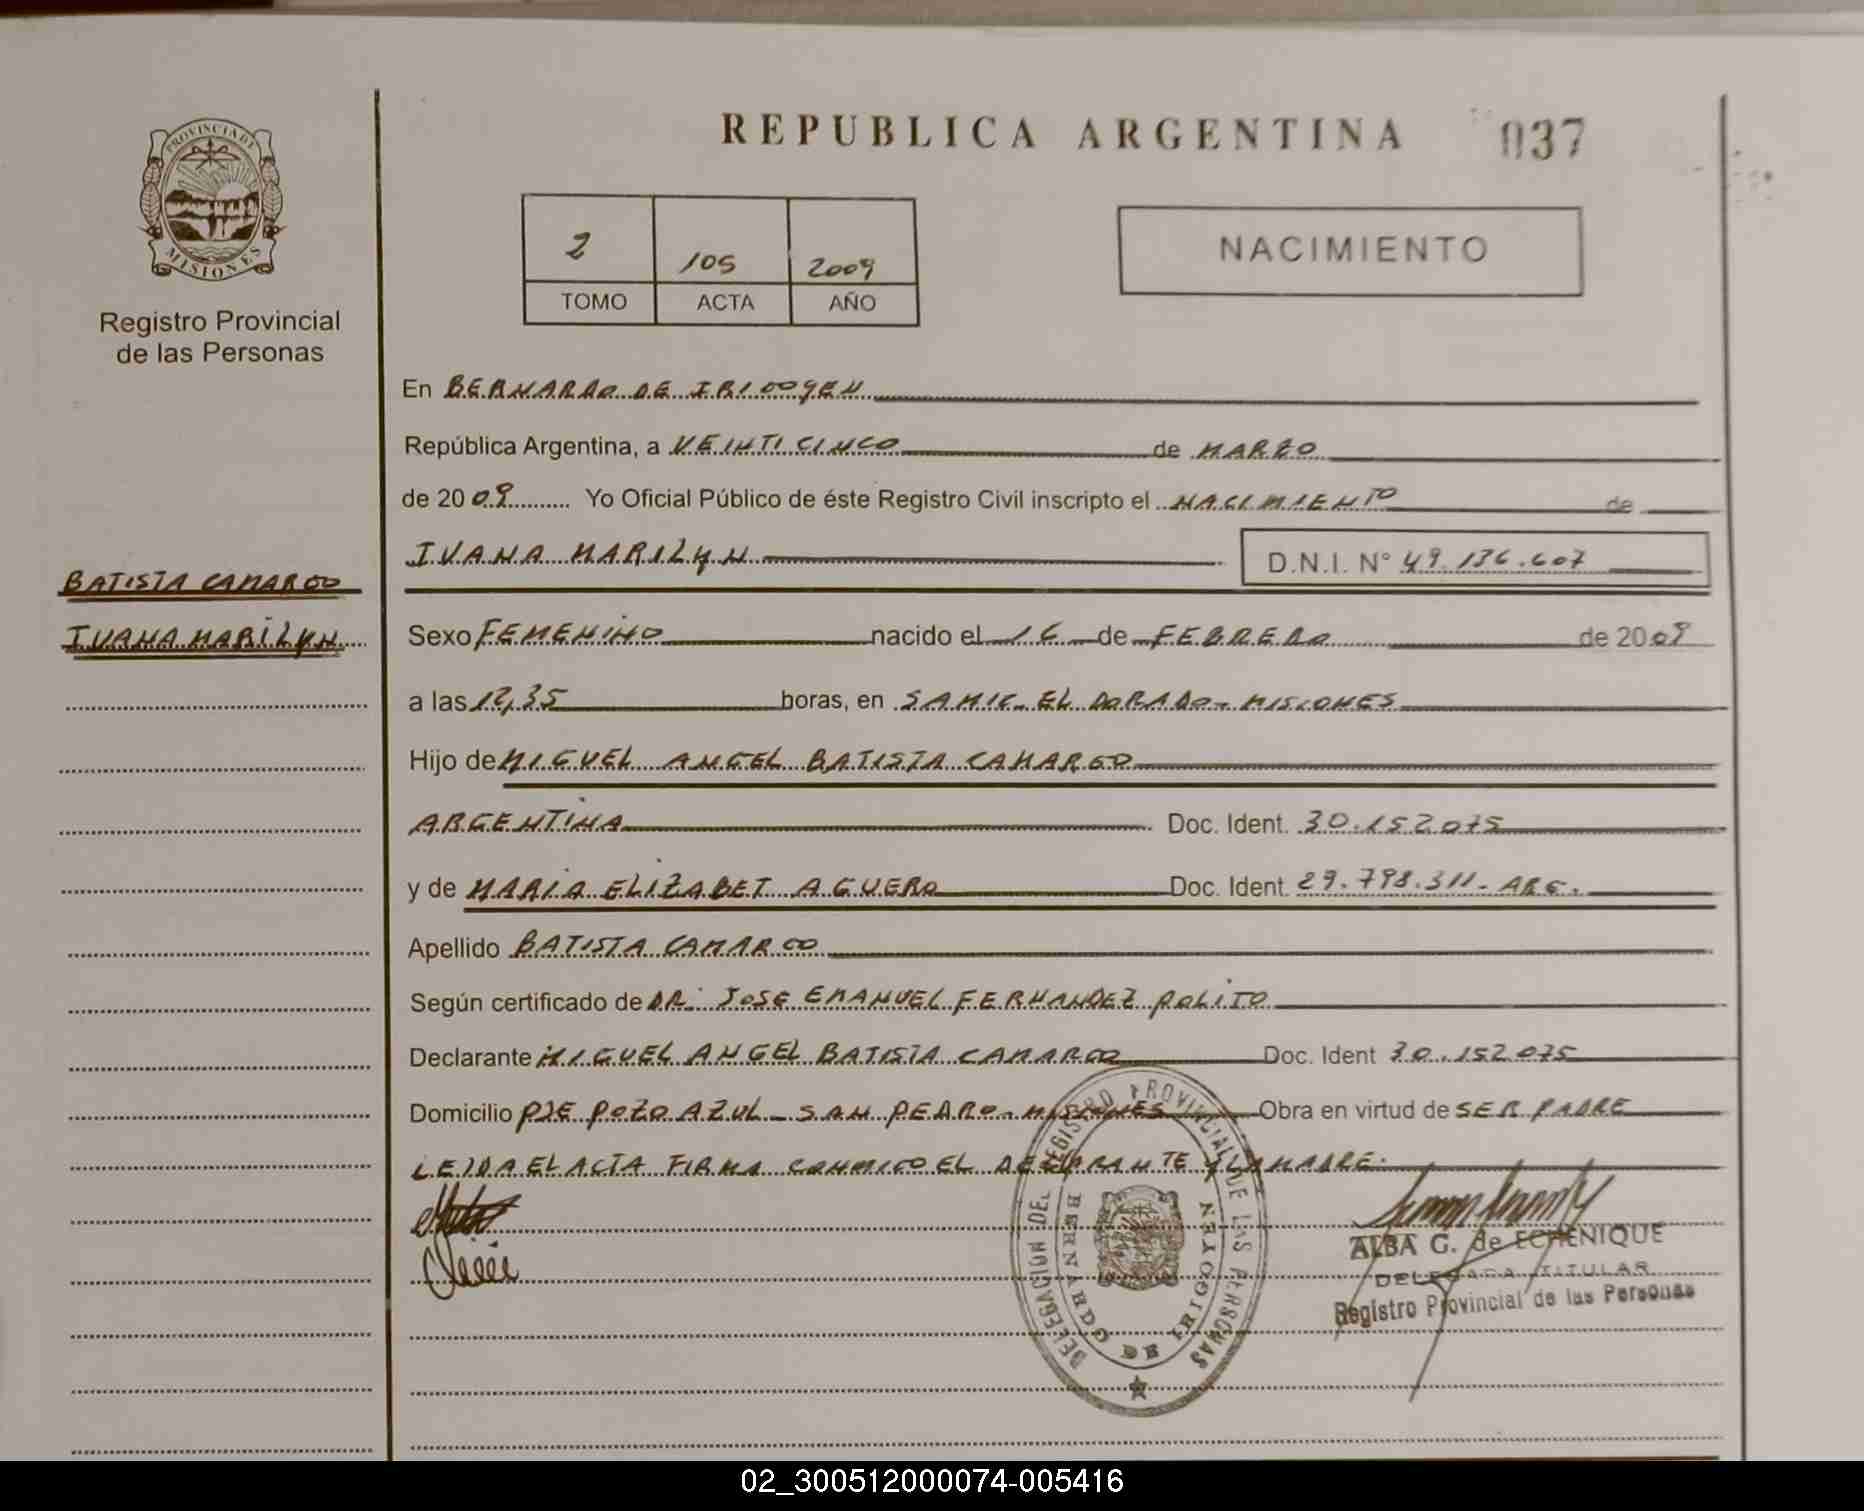 REPUBLICA ARGENTINA 037
PROVINCIA DE
MISIONES
Registro Provincial
de las Personas
2 105 2009
TOMO ACTA AÑO
NACIMIENTO
En BERNARDO DE IRIGOYEN
República Argentina, a VEINTICINCO de MARZO
de 2009 Yo Oficial Público de éste Registro Civil inscripto el NACIMIENTO de
IVANA MARILYN D.N.I. N° 49.136.607
BATISTA CAMARGO
IVANA MARILYN
Sexo FEMENINO nacido el 16 de FEBRERO de 2009
a las 12,35 horas, en SAMIC - EL DORADO - MISIONES
Hijo de MIGUEL ANGEL BATISTA CAMARGO
ARGENTINA Doc. Ident. 30.152075
y de MARIA ELIZABET AGUERO Doc. Ident. 29.798.311 - ARG.
Apellido BATISTA CAMARGO
Según certificado de DR. JOSE EMANUEL FERNANDEZ POLITO
Declarante MIGUEL ANGEL BATISTA CAMARGO Doc. Ident 30.152075
Domicilio PJE POZO AZUL - SAN PEDRO - MISIONES Obra en virtud de SER PADRE
LEIDA EL ACTA FIRMA CONMIGO EL DECLARANTE Y LA MADRE.
DELEGACION DEL REGISTRO PROVINCIAL DE LAS PERSONAS
BERNARDO DE IRIGOYEN
ALBA G. de ECHENIQUE
DELEGADA TITULAR
Registro Provincial de las Personas
02_300512000074-005416